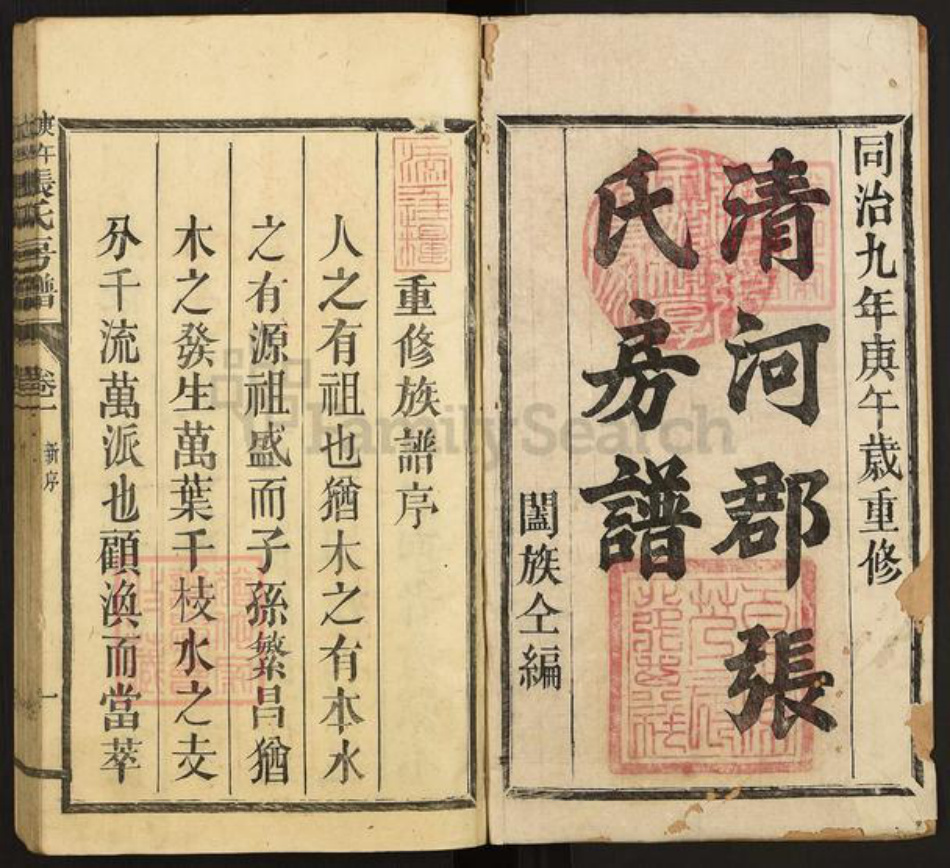 同治九年庚午歲重修
清河郡張
氏房譜
闔族仝編
重修族譜序
人之有祖也猶木之有本水
之有源祖盛而子孫繁昌猶
木之發生萬葉千枝水之支
分千流萬派也顧渙而當萃
庚午
張氏房譜
卷一
新序
一
FamilySearch